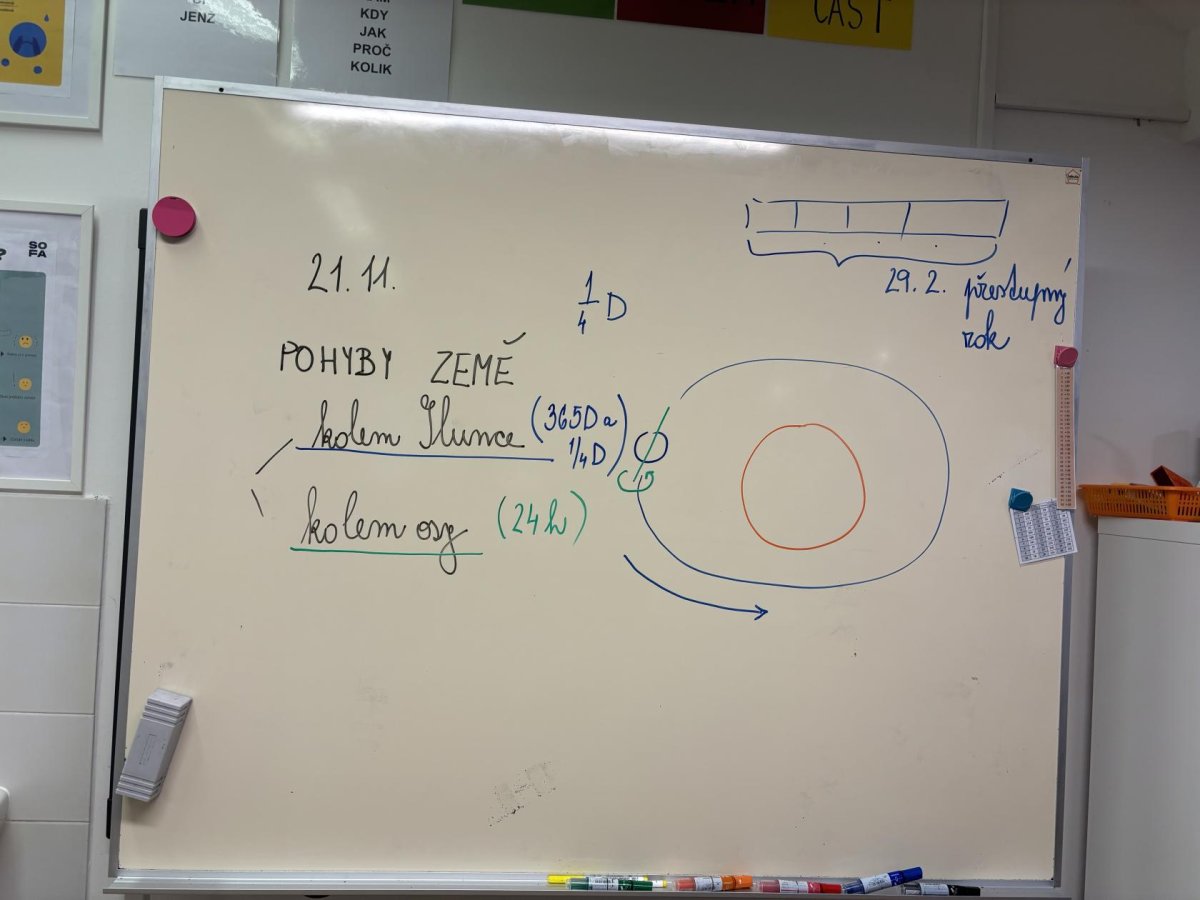 JENZ
KDY
JAK
PROČ
KOLIK
ČÁST
SO
FA
?
21.11.
1/4 D
29. 2. přestupný
rok
POHYBY ZEMĚ
kolem Slunce (365D a
1/4D)
kolem osy (24h)